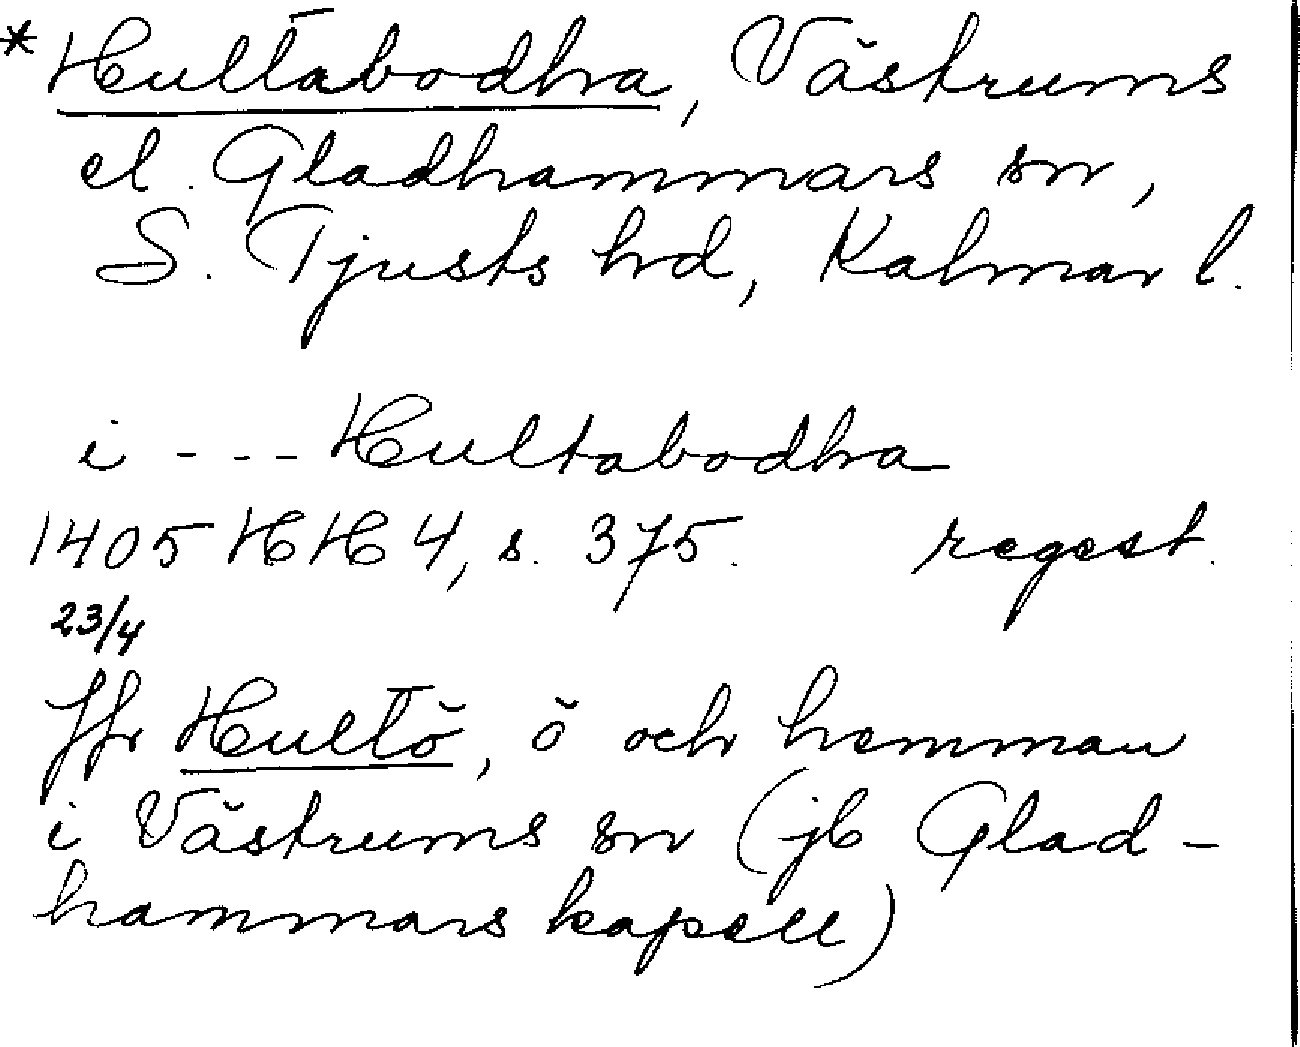 * Hultabodha, Västrums
el. Gladhammars sn,
S. Tjusts hd, Kalmar l.
i --- Hultabodha
1405 HH 4, s. 375. regest.
23/4
Jfr Hultö, ö och hemman
i Västrums sn (jb Glad-
hammars kapell)